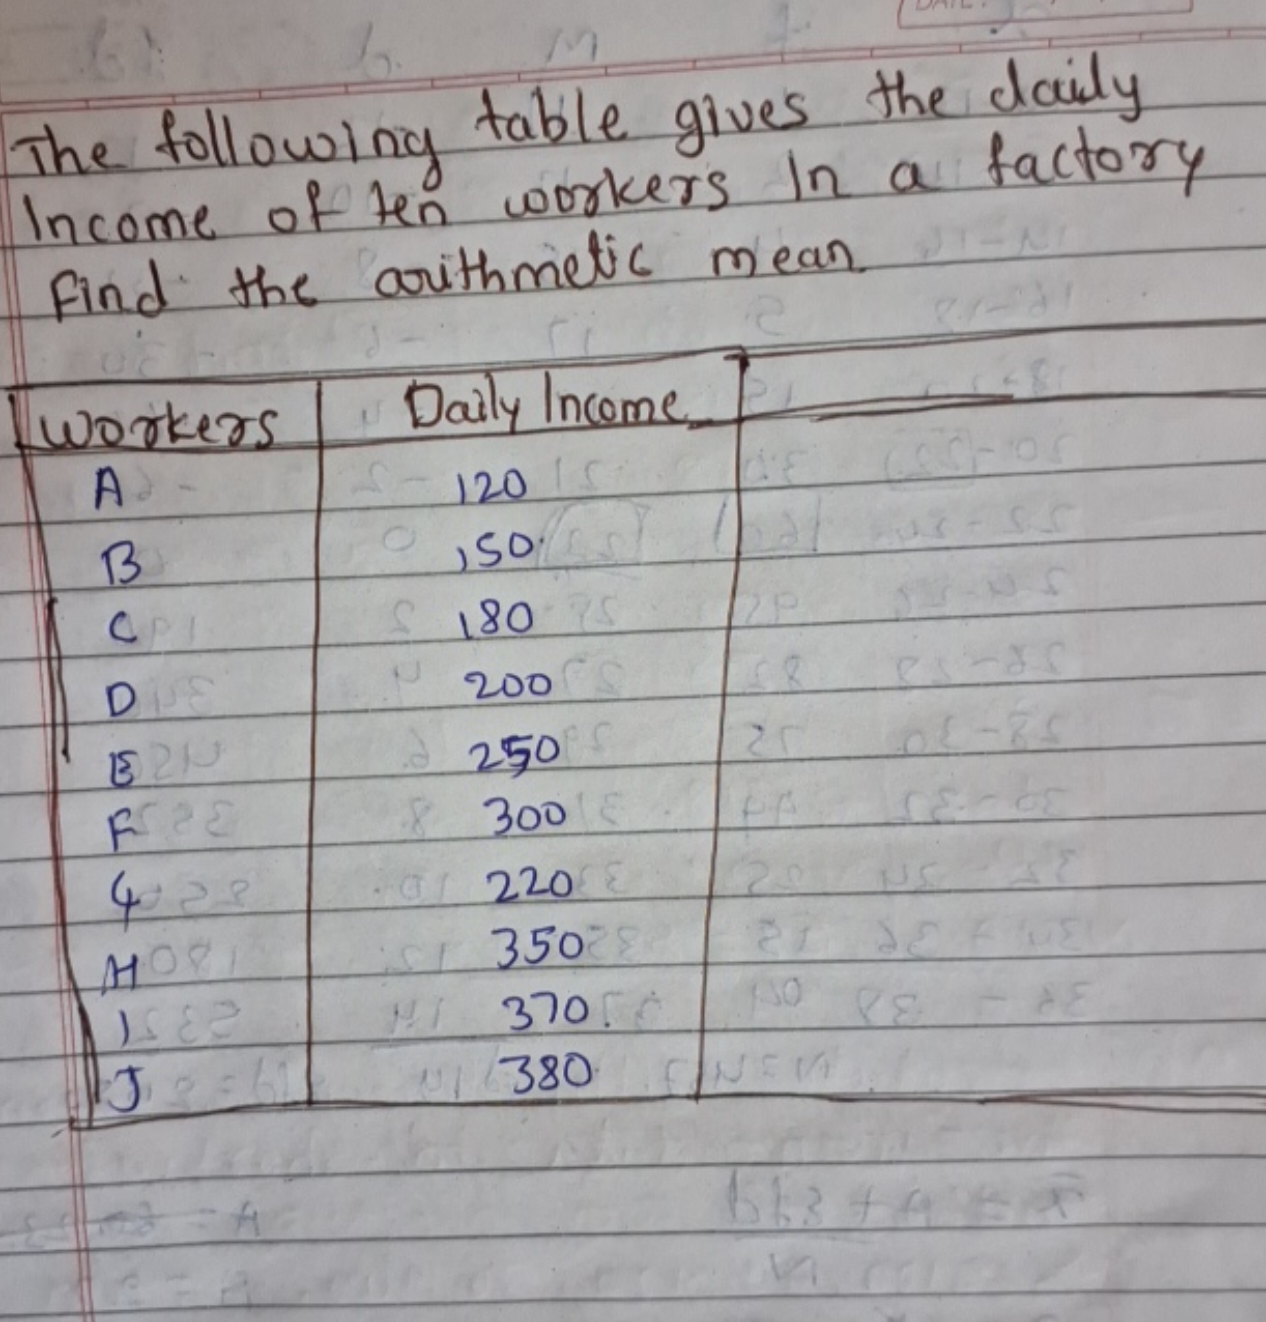 The following table gives the daily
Income of ten workers In a factory
Find the arithmetic mean
Workers Daily Income
A 120
B 150
C 180
D 200
E 250
F 300
G 220
H 350
I 370
J 380